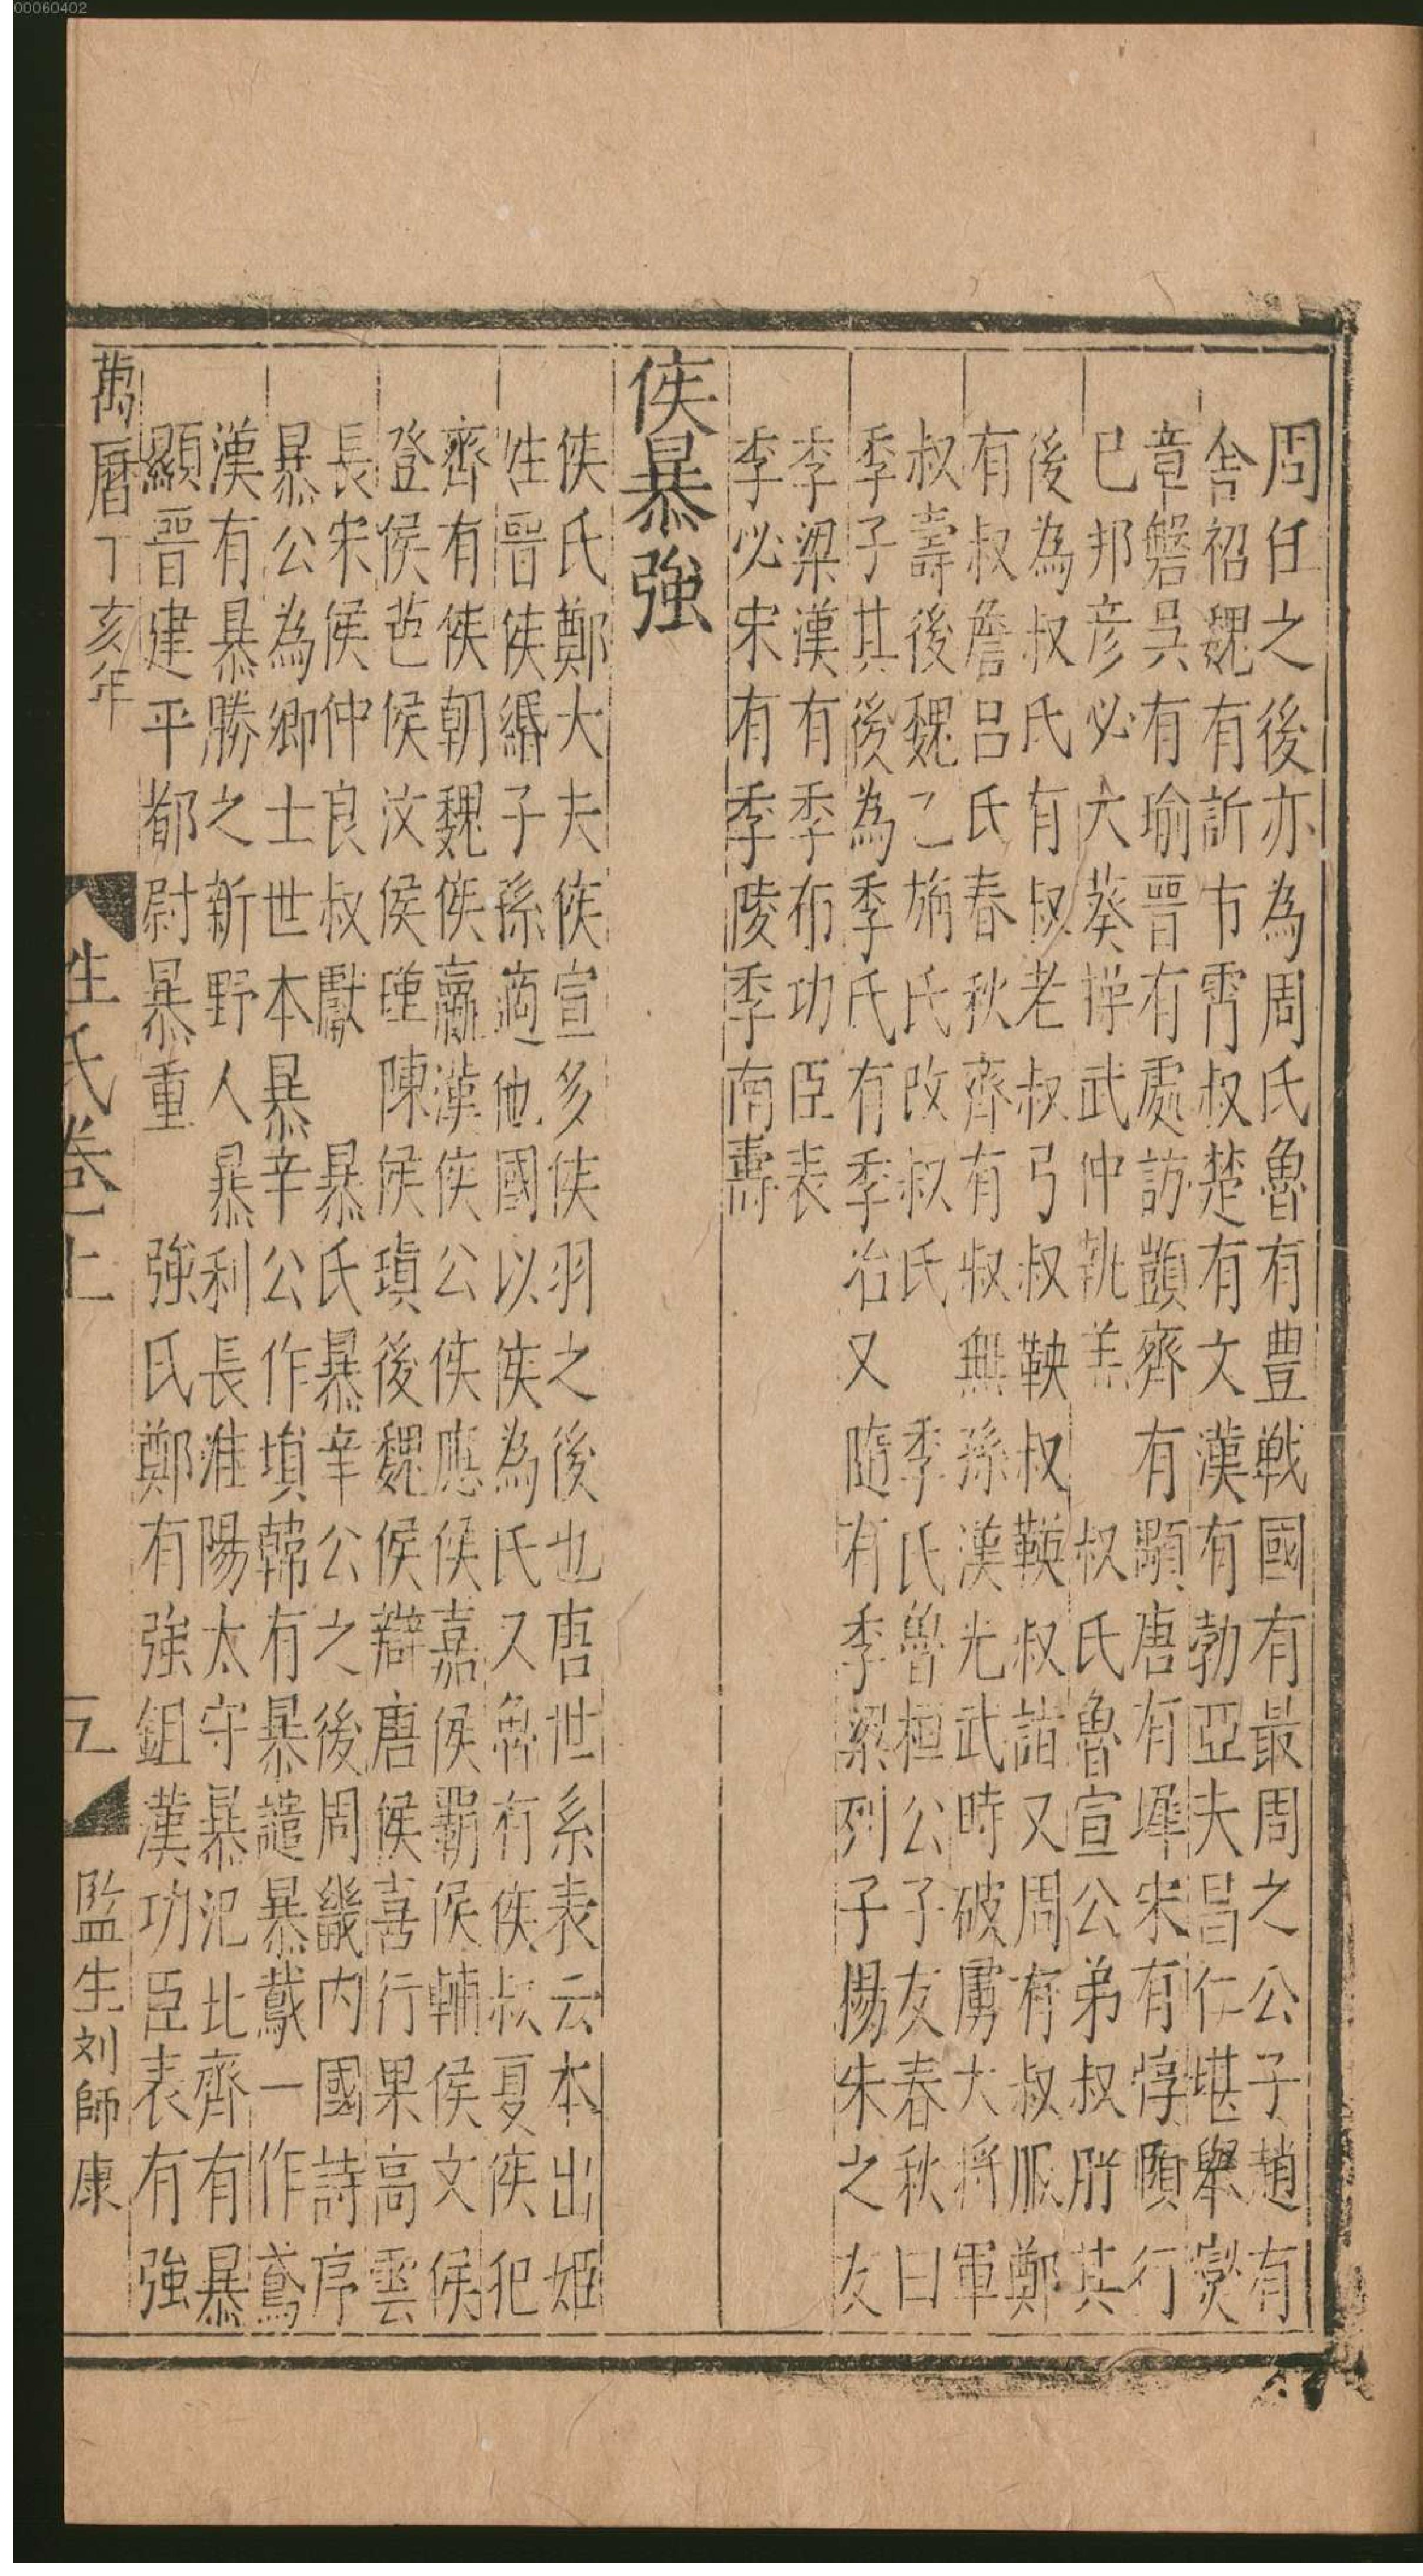 00060402
周任之後亦為周氏魯有豊戰國有最周之公子趙有
舍祒魏有訢市霄叔楚有文漢有勃亞夫昌仁堪舉爕
章磐吳有瑜晋有處訪顗齊有顒唐有墀宋有惇頤行
巳邦彦必大葵墠武仲執羔　叔氏魯宣公弟叔肸其
後為叔氏有叔老叔弓叔鞅叔鞅叔詣又周有叔服鄭
有叔詹吕氏春秋齊有叔無孫漢光武時破虜大將軍
叔壽後魏乙旃氏改叔氏　季氏魯桓公子友春秋曰
季子其後為季氏有季冶又隨有季梁列子楊朱之友
李梁漢有季布功臣表
李必宋有季陵季南壽
侯暴強
侯氏鄭大夫侯宣多侯羽之後也唐世系表云本出姬
姓晋侯緡子孫適他國以侯為氏又魯有侯叔夏侯犯
齊有侯朝魏侯嬴漢侯公侯應侯嘉侯霸侯輔侯文侯
登侯芭侯汶侯瑾陳侯瑱後魏侯辯唐侯喜行果高雲
長宋侯仲良叔獻　暴氏暴辛公之後周畿内國詩序
暴公為卿士世本暴辛公作塤韓有暴譴暴鳶一作鳶
漢有暴勝之新野人暴利長淮陽太守暴汜北齊有暴
顯晋建平都尉暴重　強氏鄭有強鉏漢功臣表有強
萬曆丁亥年
姓氏卷一上
五
監生刘師康